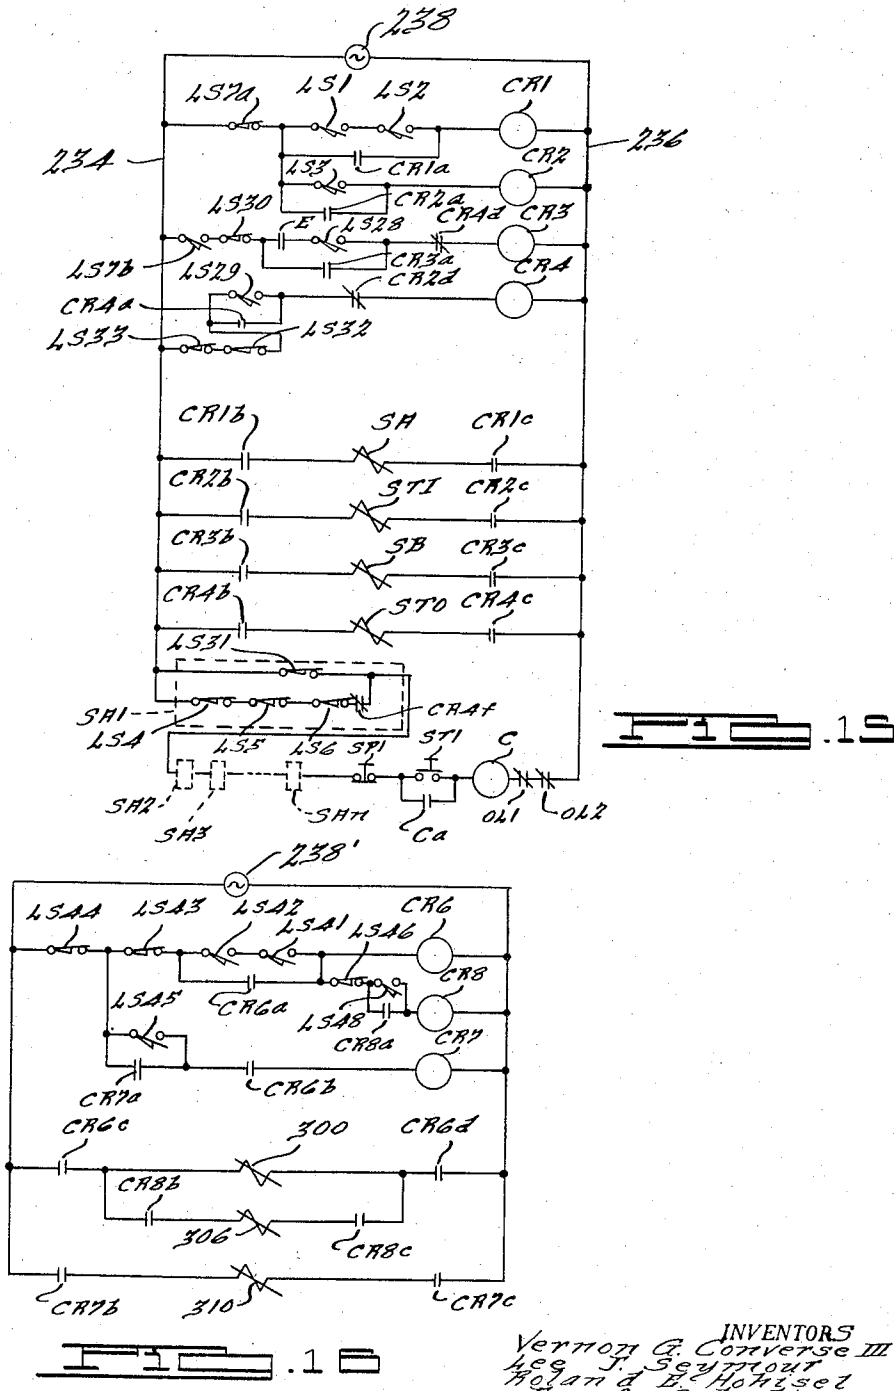 238
LS7a LS1 LS2 CR1
234 236
CR1a
LS3 CR2
CR2a
LS30 E LS28 CR4d CR3
LS7b CR3a
LS29 CR2d CR4
CR4a
LS33 LS32
CR1b SA CR1c
CR2b STI CR2c
CR3b SB CR3c
CR4b STO CR4c
LS31
SA1 CR4f
LS4 LS5 LS6 SP1 ST1 C
SA2 SA3 SAn Ca OL1 OL2
FIG.15
238'
LS44 LS43 LS42 LS41 LS46 CR6
CR8
LS45 CR6a LS48 CR8a CR7
CR7a CR6b
CR6c 300 CR6d
CR8b
306 CR8c
CR7b 310 CR7c
FIG.16
INVENTORS
Vernon G. Converse III
Lee J. Seymour
Roland E. Hohisel